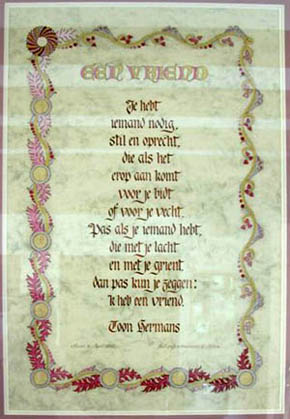 EEN VRIEND
Je hebt
iemand nodig,
stil en oprecht,
die als het
erop aan komt
voor je bidt
of voor je vecht.
Pas als je iemand hebt,
die met je lacht
en met je grient
dan pas kun je zeggen:
'k heb een vriend.
Toon Hermans